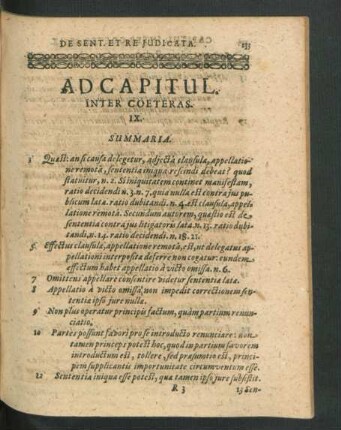 DE SENT. ET RE JUDICATA.
AD CAPITUL.
INTER COETERAS.
IX.
SUMMARIA.
1 Quæst: an si causa delegetur, adjectâ clausula, appellatio-
ne remotâ, sententia iniqua rescindi debeat? quod
statuitur, n. 2. Si iniquitatem contineat manifestam,
ratio decidendi n. 3. n. 7. qua nulla est contra jus pu-
blicum lata. ratio dubitandi. n. 4. est clausula, appel-
latione remotâ. Secundum autorem, quæstio est de
sententia contra jus litigatoris lata n. 13. ratio dubi-
tandi, n. 14. ratio decidendi. n. 18. 21.
5. Effectus clausulæ, appellatione remotâ, est, ut delegatus ap-
pellationi interposita deferre non cogatur: eundem
effectum habet appellatio à victo omissa. n. 6.
7 Omittens appellare consentire videtur sententia lata.
8 Appellatio à victo omissa, non impedit correctionem sen-
tentia ipso jure nulla.
9 Non plus operatur principis factum, quàm partium renun-
ciatio,
10 Partes possunt favori pro se introducto renunciare: non
tamen princeps potest hoc, quod in partium favorem
introductum est, tollere, sed præsumitur est, princi-
pem supplicantis importunitate circumventum esse.
12 Sententia iniqua esse potest, qua tamen ipso jure subsistit.
R 3
13 Sen-